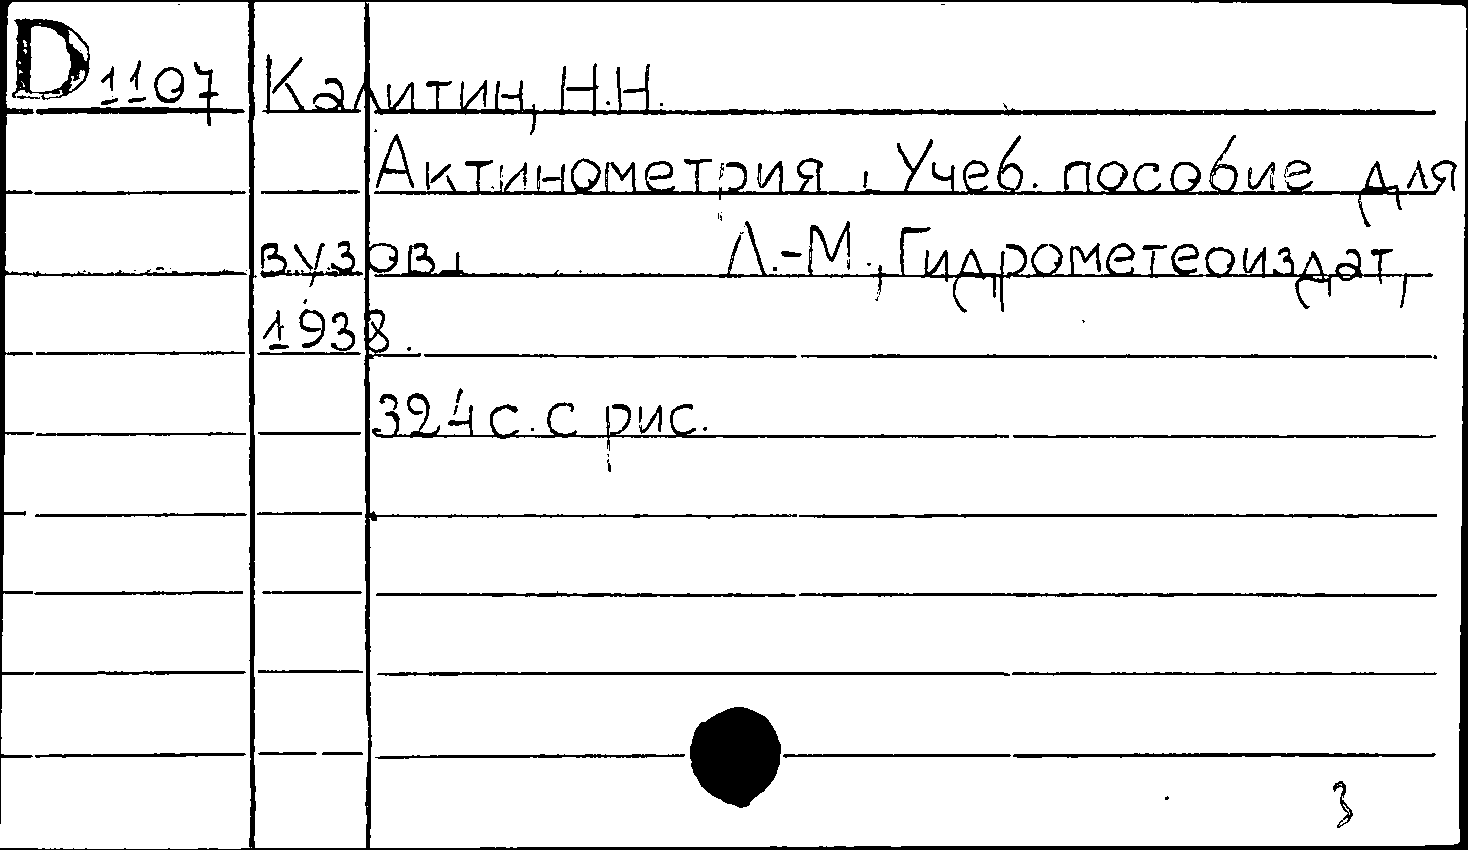 D 1107 Калитин, Н.Н.
Актинометрия. Учеб. пособие для
вузов. Л.-М., Гидрометеоиздат,
1938.
324 с. с рис.
3